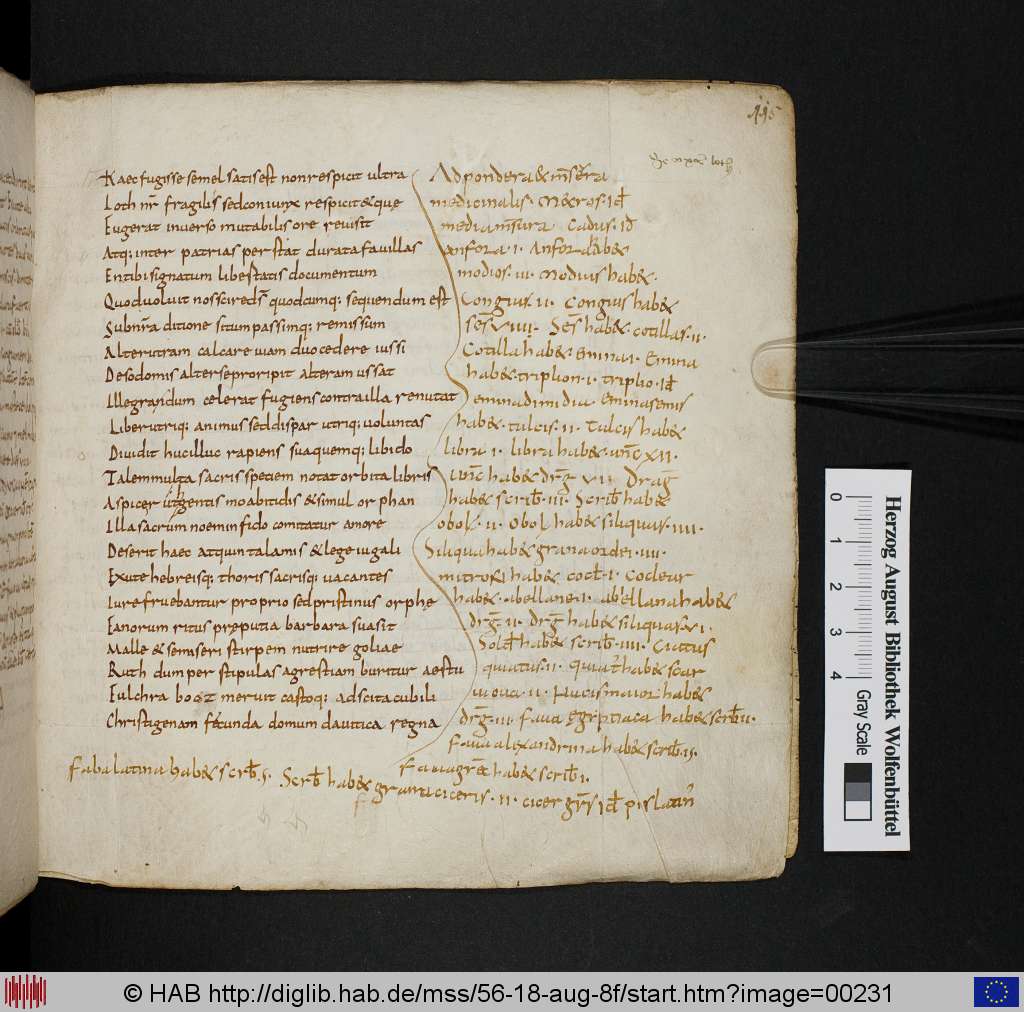 115
Haec fugisse semel satis est non respicit ultra
Loth nr̄ fragilis sed coniunx respicit & que
Fugerat inverso mutabilis ore revisit
Atq; inter patrias perstat durata favillas
En tibi signatum libertatis documentum
Quo d̄s voluit nos scire quodcumq; sequendum est
Sub nr̄a ditione situm passimq; remissum
Alterutram calcare viam duo cedere iussi
De sodomis alter se proripit altera mussat
Ille gradum celerat fugiens contra illa renutat
Liber utriq; animus sed dispar utriq; voluntas
Dividit huc illuc rapiens sua quemq; libido
Talem multa sacris speciem notat orbita libris
Aspice r gentis moabitidis & simul orphan
Illa sacrum noemin fido comitatur amore
Deserit haec atquin talamis & lege iugali
Exute hebreisq; thoris sacrisq; vacantes
Iure fruebantur proprio sed pristinus orphe
Fanorum ritus preputia barbara suasit
Malle & semiferi stirpem nutrire goliae
Ruth dum per stipulas agrestiam buritur aestu
Fulchra booz meruit castoq; adscita cubili
Christigenam fecunda domum davitica regna
Ad pondera & m̄sūra
medicinalis. Mecros. id̄
media m̄sura Cadus. id̄
anfora .I. Anfora hab&
modios. III. Modius hab&.
Congius. II. Congius hab&
sex̄ VIIII. Sex̄ hab&. cotillas. II.
Cotilla hab&. emina I. Emina
hab&. triplion. I. triplio. id̄
emina dimidia Emina semis
hab&. talcis. II. Talcis hab&
libra I. libra hab& unc̄ XII.
Unc̄ hab& drḡ VI. Draḡ
hab& scrib̄. III. Scrib̄ hab&
obol. II. Obol hab& siliquas. IIII.
Siliqua hab& grana ordei. IIII.
mitrofi hab& cocl̄. I. Coclear
hab&. abellane I. abellana hab&
drḡ. II. drḡ hab& siliquas XI.
Solid̄ hab& scrib̄. IIII. Ciatus
quiatus. II. quiat̄ hab& soar
drḡ. III. fava egiptiaca hab& scrib̄. II.
Fava alexandrina hab& scrib̄. IS.
Fava grēc hab& scrib̄ I.
Faba latina hab& scrib̄. S. Scrib̄ hab& grana ciceris. II. cicer grīs id̄ pis latin̄
Herzog August Bibliothek Wolfenbüttel
0 1 2 3 4
Gray Scale
© HAB http://diglib.hab.de/mss/56-18-aug-8f/start.htm?image=00231